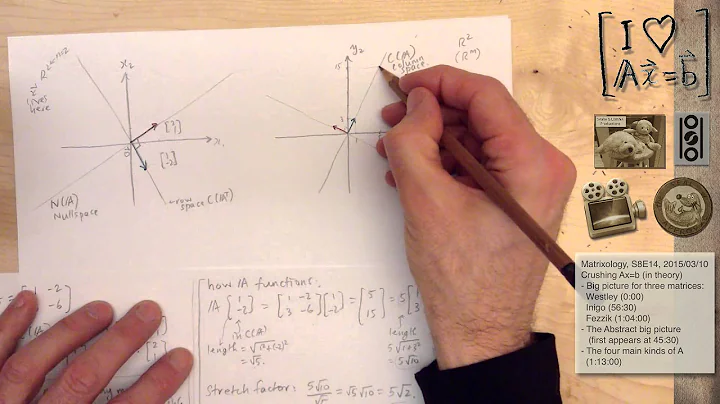 x₂
y₂
C(A)
column
space.
R²
(Rᵐ)
15
x⃗
lives
here
[2 1]
[1 -2]
x₁
1
1
0
N(A)
Nullspace
row
space C(Aᵀ)
how A functions.
A [1 -2] = [1 -2 3 -6] [1 -2] = [5 15] = 5 [1 3]
in C(A)
length = √1²+(-2)²
= √5.
length
5√1+3²
= 5√10
stretch factor: 5√10/√5 = √5√10 = 5√2.
1 -2
-6
I ♡
Ax⃗=b⃗
Matrixology, S8E14, 2015/03/10
Crushing Ax=b (in theory)
- Big picture for three matrices:
Westley (0:00)
Inigo (56:30)
Fezzik (1:04:00)
- The Abstract big picture
(first appears at 45:30)
- The four main kinds of A
(1:13:00)